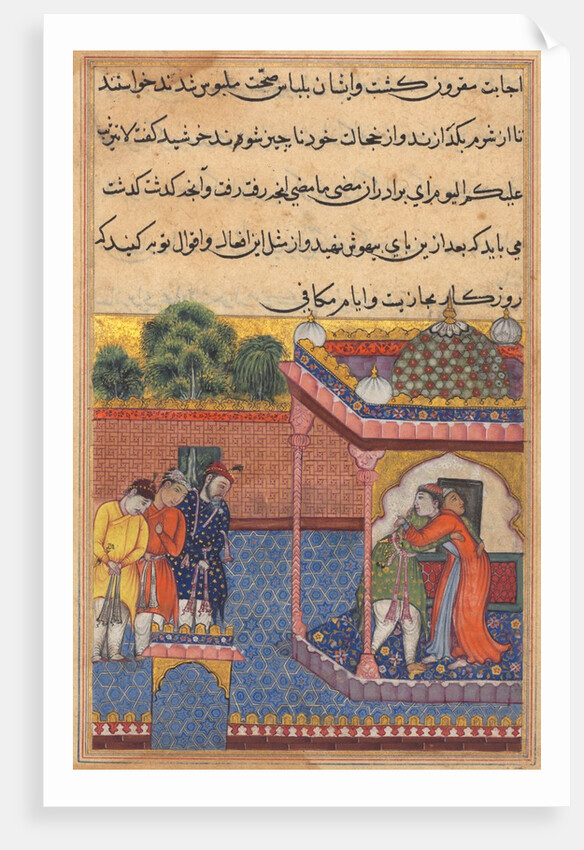 اجابت مقرون گشت و ایشان بلباس صحت ملبوس شدند خواستند
تا از شرم بگدازند و از خجالت خود ناچیز شوند خرشید گفت لا تثریب
علیکم الیوم ای برادران مضی ما مضی انچه رفت رفت و آنچه گذشت گذشت
می باید که بعد ازین پای بیهوش نهید و از مثل این افعال و اقوال توبه کنید که
روزگار مجازیست و ایام مکافی